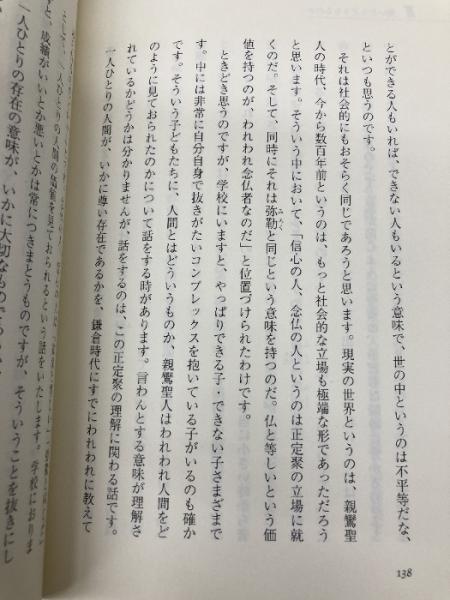 とができる人もいれば、できない人もいるという意味で、世の中というのは不平等だな、
といつも思うのです。
それは社会的にもおそらく同じであろうと思います。現実の世界というのは、親鸞聖
人の時代、今から数百年前というのは、もっと社会的な立場も極端な形であっただろう
と思います。そういう中において、「信心の人、念仏の人というのは正定聚の立場に就
くのだ。そして、同時にそれは弥勒と同じという意味を持つのだ。仏と等しいという価
値を持つのが、われわれ念仏者なのだ」と位置づけられたわけです。
ときどき思うのですが、学校にいますと、やっぱりできる子・できない子さまざまで
す。中には非常に自分自身で抜きがたいコンプレックスを抱いている子がいるのも確か
です。そういう子どもたちに、人間とはどういうものか、親鸞聖人はわれわれ人間をど
のように見ておられたのかについて話をする時があります。言わんとする意味が理解さ
れているかどうかは分かりませんが、話をするのは、この正定聚の理解に関わる話です。
一人ひとりの人間が、いかに尊い存在であるかを、鎌倉時代にすでにわれわれに教えて
見ておられるという話をいたします。学校におりま
すと、成績がいいとか悪いとかは常につきまとうものですが、そういうことを抜きにし
一人ひとりの存在の意味が、いかに大切なもので
138